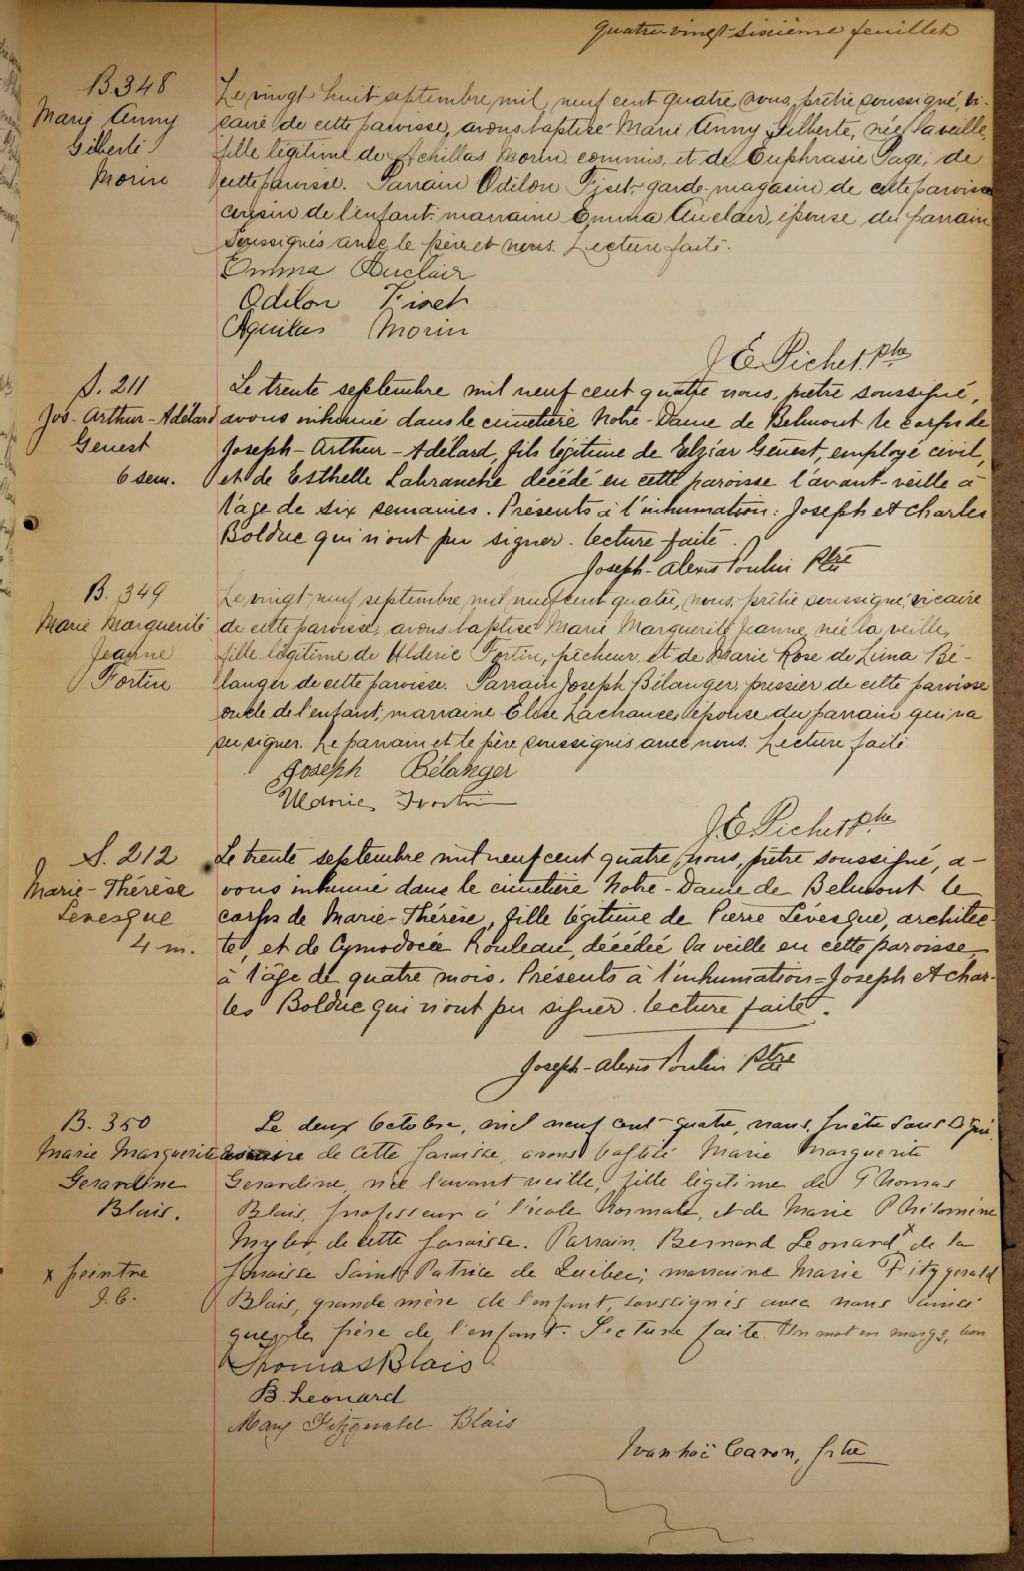 quatre-vingt-sixième feuillet
B. 348
Marie Anny
Gilberte
Morin
Le vingt huit septembre mil neuf cent quatre, nous, prêtre soussigné, vi-
caire de cette paroisse, avons baptisé Marie Anny Gilberte, née la veille,
fille légitime de Achillas Morin commis, et de Euphrasie Pagé, de
cette paroisse. Parrain Odilon Fiset, garde-magasin de cette paroisse
cousin de l'enfant; marraine Emma Auclair, épouse du parrain
soussignés avec le père et nous. Lecture faite.
Emma Auclair
Odilon Fiset
Aquilas Morin
J. E. Pichet. Ptre
S. 211
Jos-Arthur-Adélard
Genest
6 sem.
Le trente septembre mil neuf cent quatre nous, prêtre soussigné,
avons inhumé dans le cimetière Notre-Dame de Belmont le corps de
Joseph-Arthur-Adélard, fils légitime de Elzéar Genest, employé civil,
et de Esthelle Labranche décédé en cette paroisse l'avant-veille à
l'âge de six semaines. Présents à l'inhumation: Joseph et Charles
Bolduc qui n'ont pu signer. lecture faite.
Joseph-Alexis Poulin Ptre
B. 349
Marie Marguerite
Jeanne
Fortin
Le vingt-neuf septembre mil neuf cent quatre, nous, prêtre soussigné, vicaire
de cette paroisse, avons baptisé Marie Marguerite Jeanne, née la veille,
fille légitime de Alderic Fortin, pêcheur et de Marie Rose de Lima Bé-
langer de cette paroisse. Parrain Joseph Bélanger, pressier de cette paroisse
oncle de l'enfant; marraine Elise Lachance, épouse du parrain qui n'a
su signer. Le parrain et le père soussignés avec nous. Lecture faite
Joseph Bélanger
Fortin
J. E. Pichet Ptre
S. 212
Marie-Thérèse
Levesque
4 m.
Le trente septembre mil neuf cent quatre, nous, prêtre soussigné, a-
vons inhumé dans le cimetière Notre-Dame de Belmont le
corps de Marie-Thérèse, fille légitime de Pierre Lévesque, architec-
te, et de Cymodocée Rouleau, décédée la veille en cette paroisse
à l'âge de quatre mois. Présents à l'inhumation = Joseph et Char-
les Bolduc qui n'ont pu signer. lecture faite.
Joseph-Alexis Poulin Ptre
B. 350
Marie Marguerite
Gerardine
Blais.
x peintre
I. C.
Le deux Octobre, mil neuf cent-quatre, nous, prêtre soussigné,
vicaire de cette paroisse, avons baptisé Marie Marguerite
Gerardine, née l'avant veille, fille légitime de Thomas
Blais, professeur à l'école Normale, et de Marie Philomène
Myler, de cette paroisse. Parrain, Bernard Leonard x de la
paroisse Saint Patrice de Québec; marraine Marie Fitzgerald
Blais, grande mère de l'enfant, soussignés avec nous ainsi
que le père de l'enfant. Lecture faite. Un mot en marge, bon
Thomas Blais
B. Leonard
Mary Fitzgerald Blais
Ivanhoë Caron, ptre